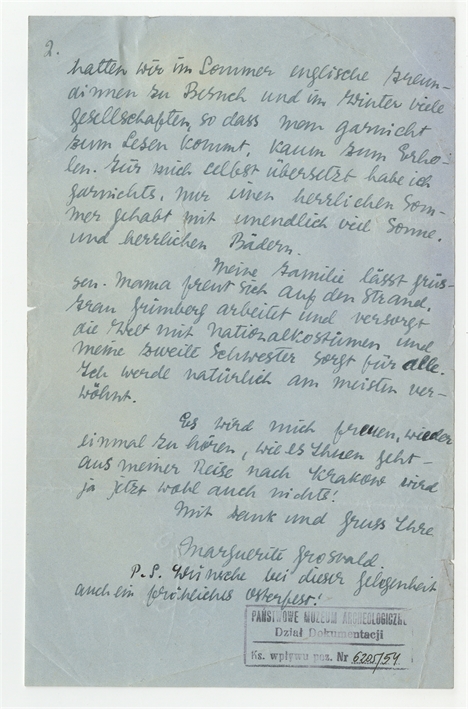 2.
hatten wir im Sommer englische Freun-
dinnen zu Besuch und im Winter viele
Gesellschaften, so dass man garnicht
zum Lesen kommt, kaum zum Erho-
len. Für mich selbst übersetzt habe ich
garnichts, nur einen herrlichen Som-
mer gehabt mit unendlich viel Sonne.
und herrlichen Bädern.
Meine Familie lässt grüs-
sen. Mama freut sich auf den Strand.
Frau Grimberg arbeitet und versorgt
die Welt mit Nationalkostümen und
meine zweite Schwester sorgt für alle.
Ich werde natürlich am meisten ver-
wöhnt.
Es wird mich freuen, wieder
einmal zu hören, wie es Ihnen geht –
aus meiner Reise nach Krakow wird
ja jetzt wohl auch nichts!
Mit Dank und Gruss Ihre
Marguerite Grosvald
P.S. Wünsche bei dieser Gelegenheit
auch ein fröhliches Osterfest!
PAŃSTWOWE MUZEUM ARCHEOLOGICZNE
Dział Dokumentacji
Ks. wpływu poz. Nr 6205/54